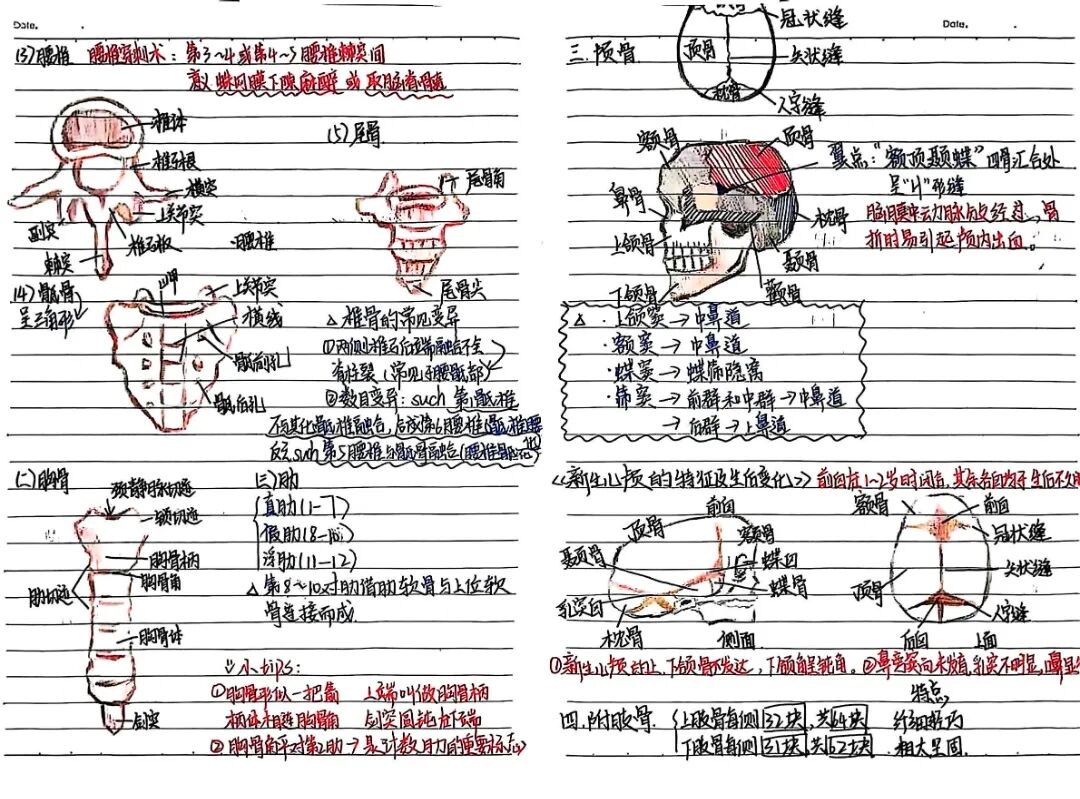 Date.
(3)腰椎 腰椎穿刺术:第3~4或第4~5腰椎棘突间
意义 蛛网膜下隙麻醉或取脑脊髓
椎体
椎弓根
横突
上关节突
副突
椎弓板
棘突
腰椎
(5)尾骨
尾骨角
尾骨尖
(4)骶骨
呈三角形
岬
上关节突
横线
骶前孔
骶后孔
△椎骨的常见变异
①两侧椎弓后端融合不全
脊柱裂(常见于腰骶部)
②数目变异:such 第1骶椎
不与其他骶椎融合,合成第6腰椎(骶椎腰化)
反之such第5腰椎与骶骨融合(腰椎骶化)
(二)胸骨
颈静脉切迹
锁切迹
胸骨柄
胸骨角
肋切迹
胸骨体
剑突
(三)肋
真肋(1-7)
假肋(8-10)
浮肋(11-12)
△第8~10对肋借肋软骨与上位软
骨连接而成.
小tips:
①胸骨形似一把箭 上端叫做胸骨柄
柄体相连胸骨角 剑突圆钝在下端
②胸骨角平对第2肋→是计数肋的重要标志
Date.
三.颅骨
冠状缝
顶骨
矢状缝
枕骨
人字缝
额骨
顶骨
翼点:"额顶颞蝶"四骨汇合处
呈"H"形缝
脑膜中动脉从此经过,骨
折时易引起颅内出血。
鼻骨
枕骨
上颌骨
颞骨
下颌骨
颧骨
△·上颌窦→中鼻道
·额窦→中鼻道
·蝶窦→蝶筛隐窝
·筛窦→前群和中群→中鼻道
→后群→上鼻道
<<新生儿颅的特征及生后变化>> 前囟在1~2岁时闭合,其余各囟均于生后不久闭
前囟
顶骨
额骨
颞骨
蝶囟
蝶骨
乳突囟
枕骨
侧面
额骨
前囟
冠状缝
矢状缝
顶骨
人字缝
后囟
上面
①新生儿颅的上、下颌骨不发达,下颌角呈钝角。②鼻旁窦尚未发育,乳突不明显,鼻
特点
四.附肢骨.
上肢骨每侧32块,共64块 纤细轻巧
下肢骨每侧31块,共62块 粗大坚固.